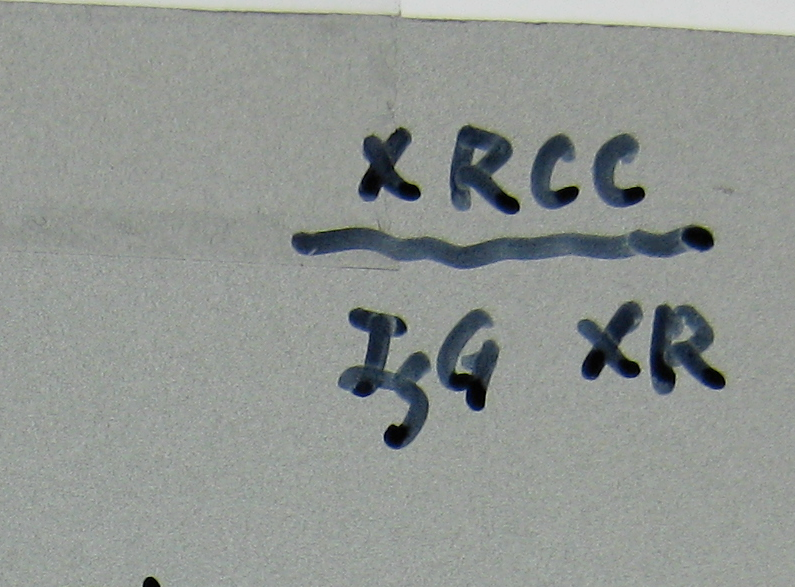 XRCC
IgG XR